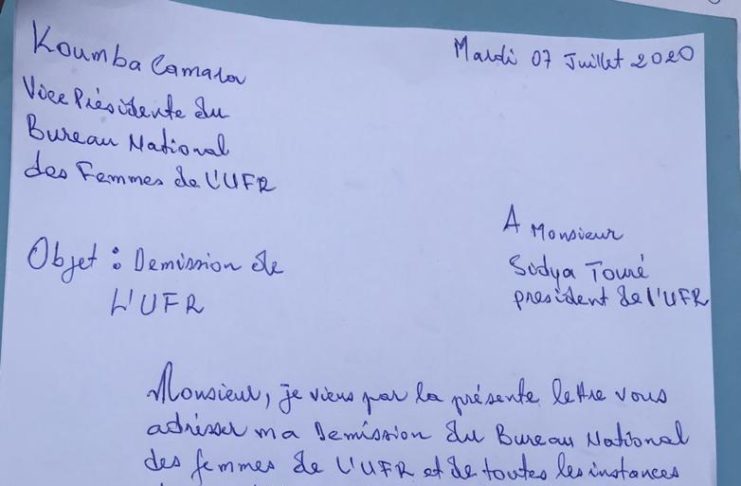 Koumba Camara
Mardi 07 Juillet 2020
Vice Présidente du
Bureau National
des Femmes de L'UFR
A Monsieur
Sidya Touré
président de l'UFR
Objet : Demission de
L'UFR
Monsieur, je viens par la présente lettre vous
adrésser ma Demission du Bureau National
des femmes de L'UFR et de toutes les instances